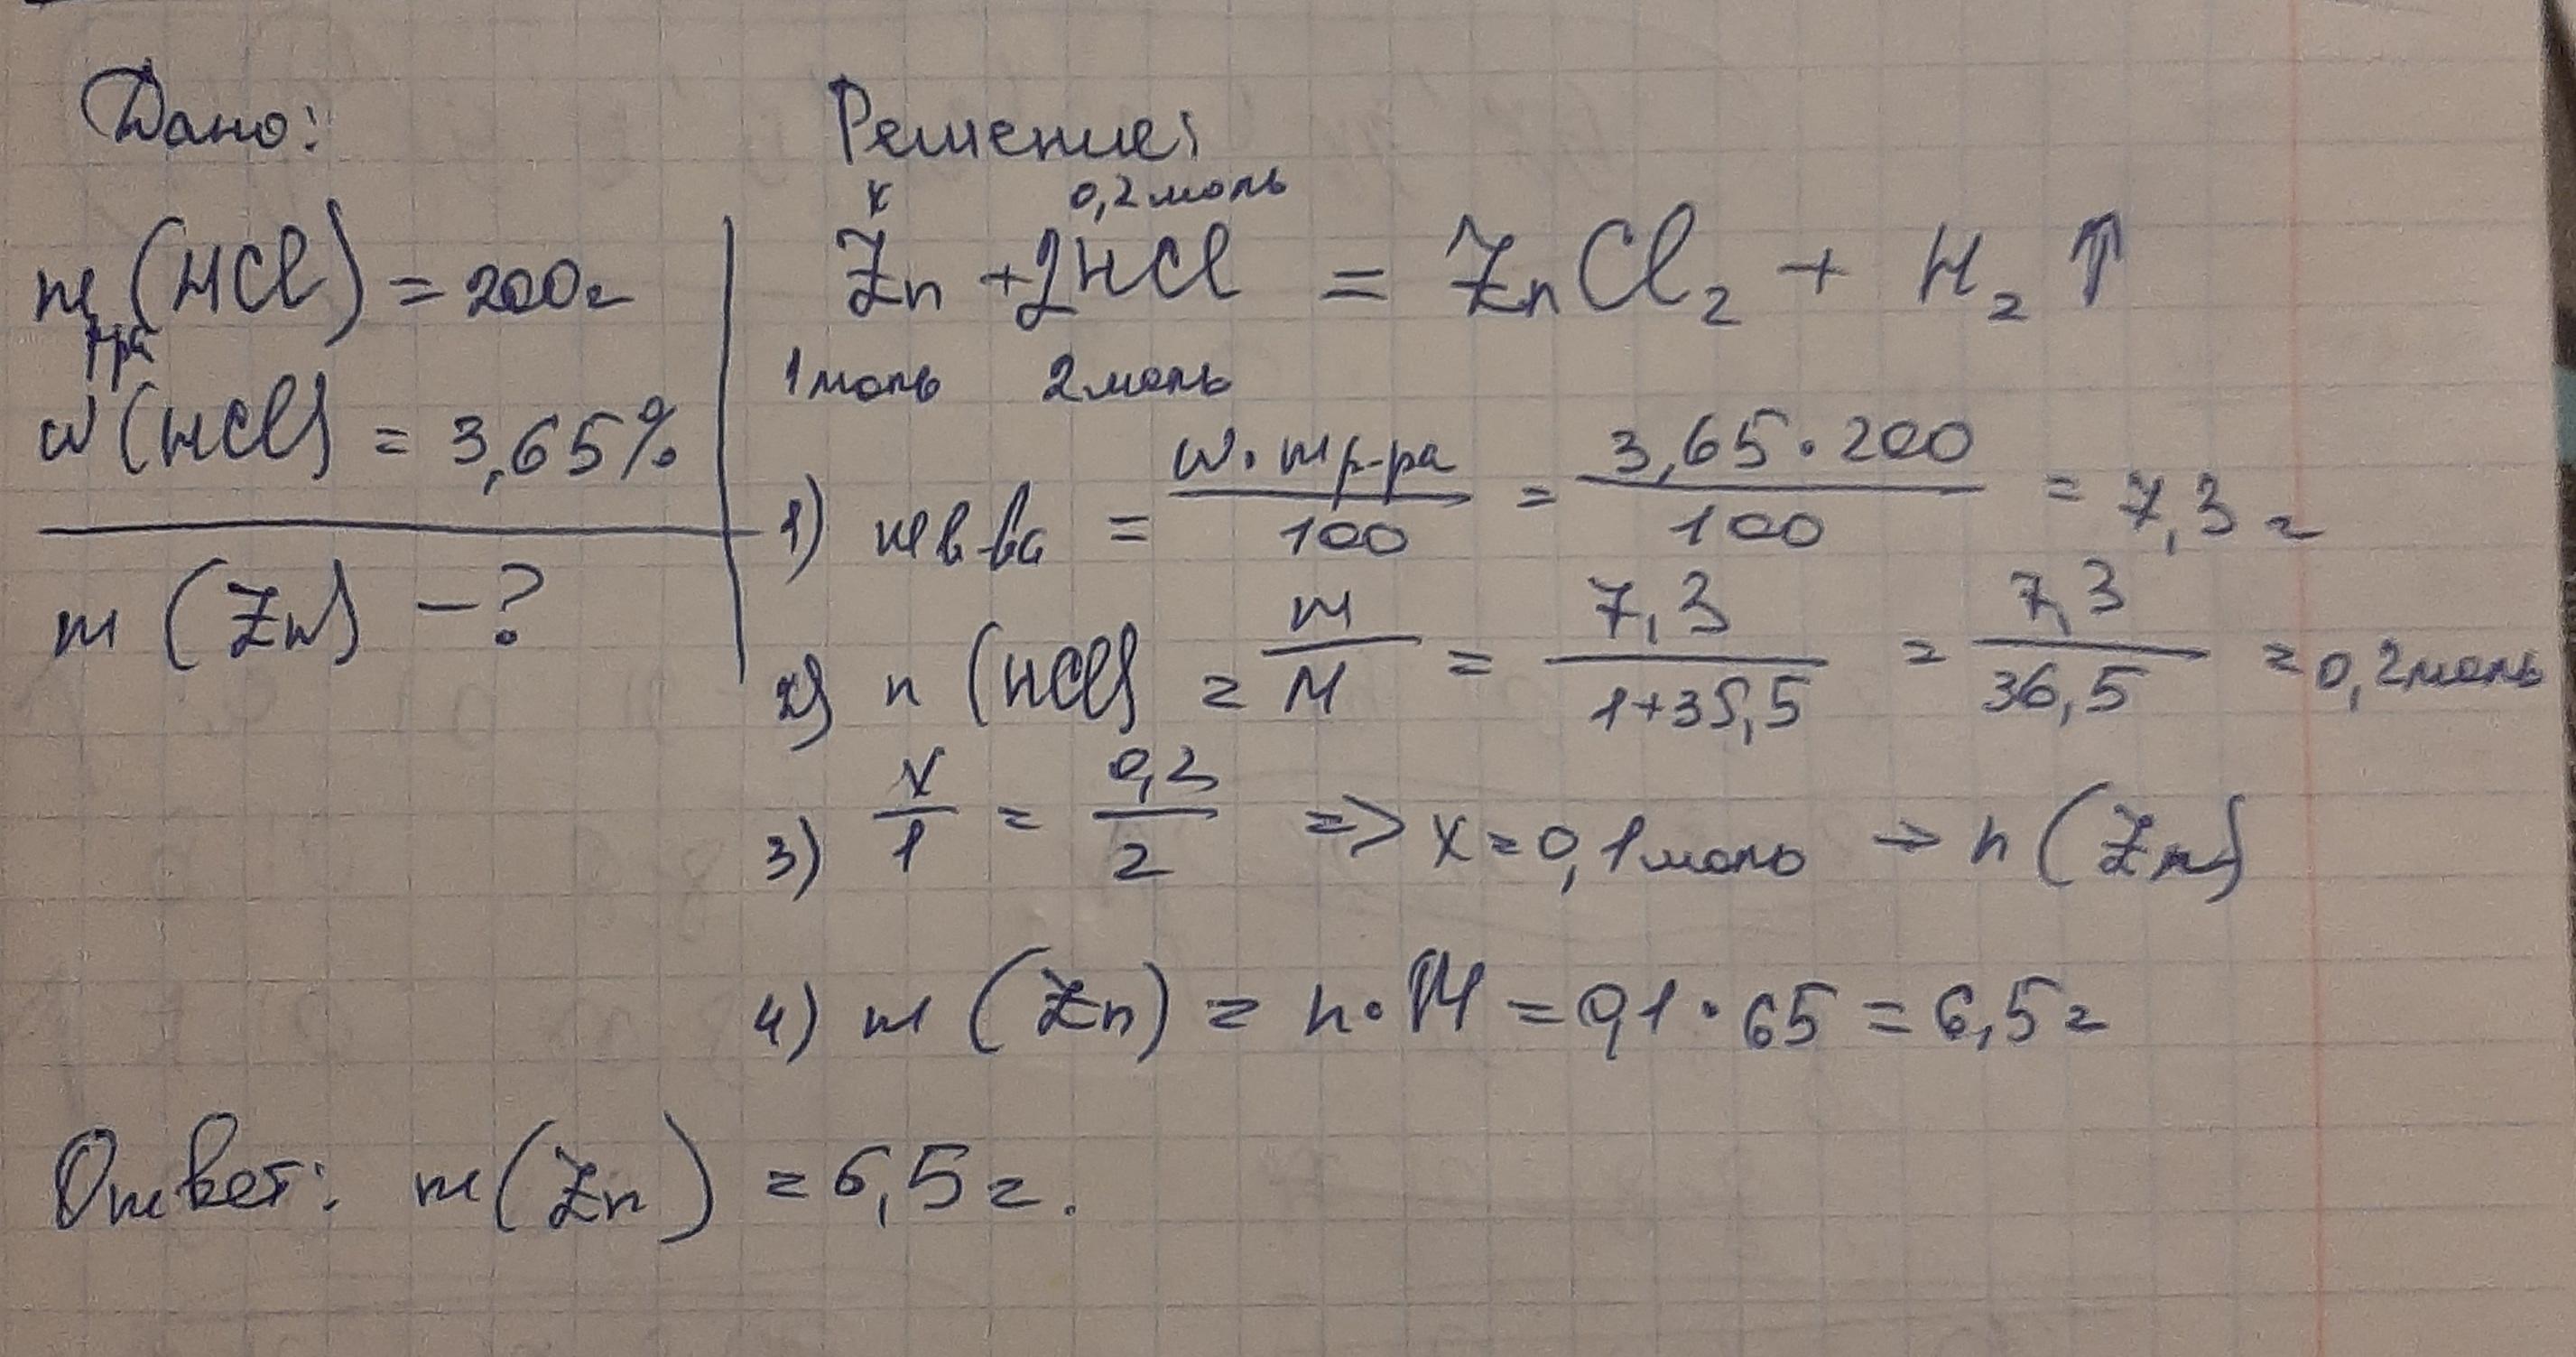 Дано:
m р-ра (HCl) = 200г
w (HCl) = 3,65%
m (Zn) - ?
Решение:
x 0,2 моль
Zn + 2HCl = ZnCl₂ + H₂ ↑
1 моль 2 моль
1) m в-ва = w · m р-ра / 100 = 3,65 · 200 / 100 = 7,3 г
2) n (HCl) = m / M = 7,3 / 1+35,5 = 7,3 / 36,5 = 0,2 моль
3) x / 1 = 0,2 / 2 => x = 0,1 моль → n (Zn)
4) m (Zn) = n · M = 0,1 · 65 = 6,5 г
Ответ: m (Zn) = 6,5 г.